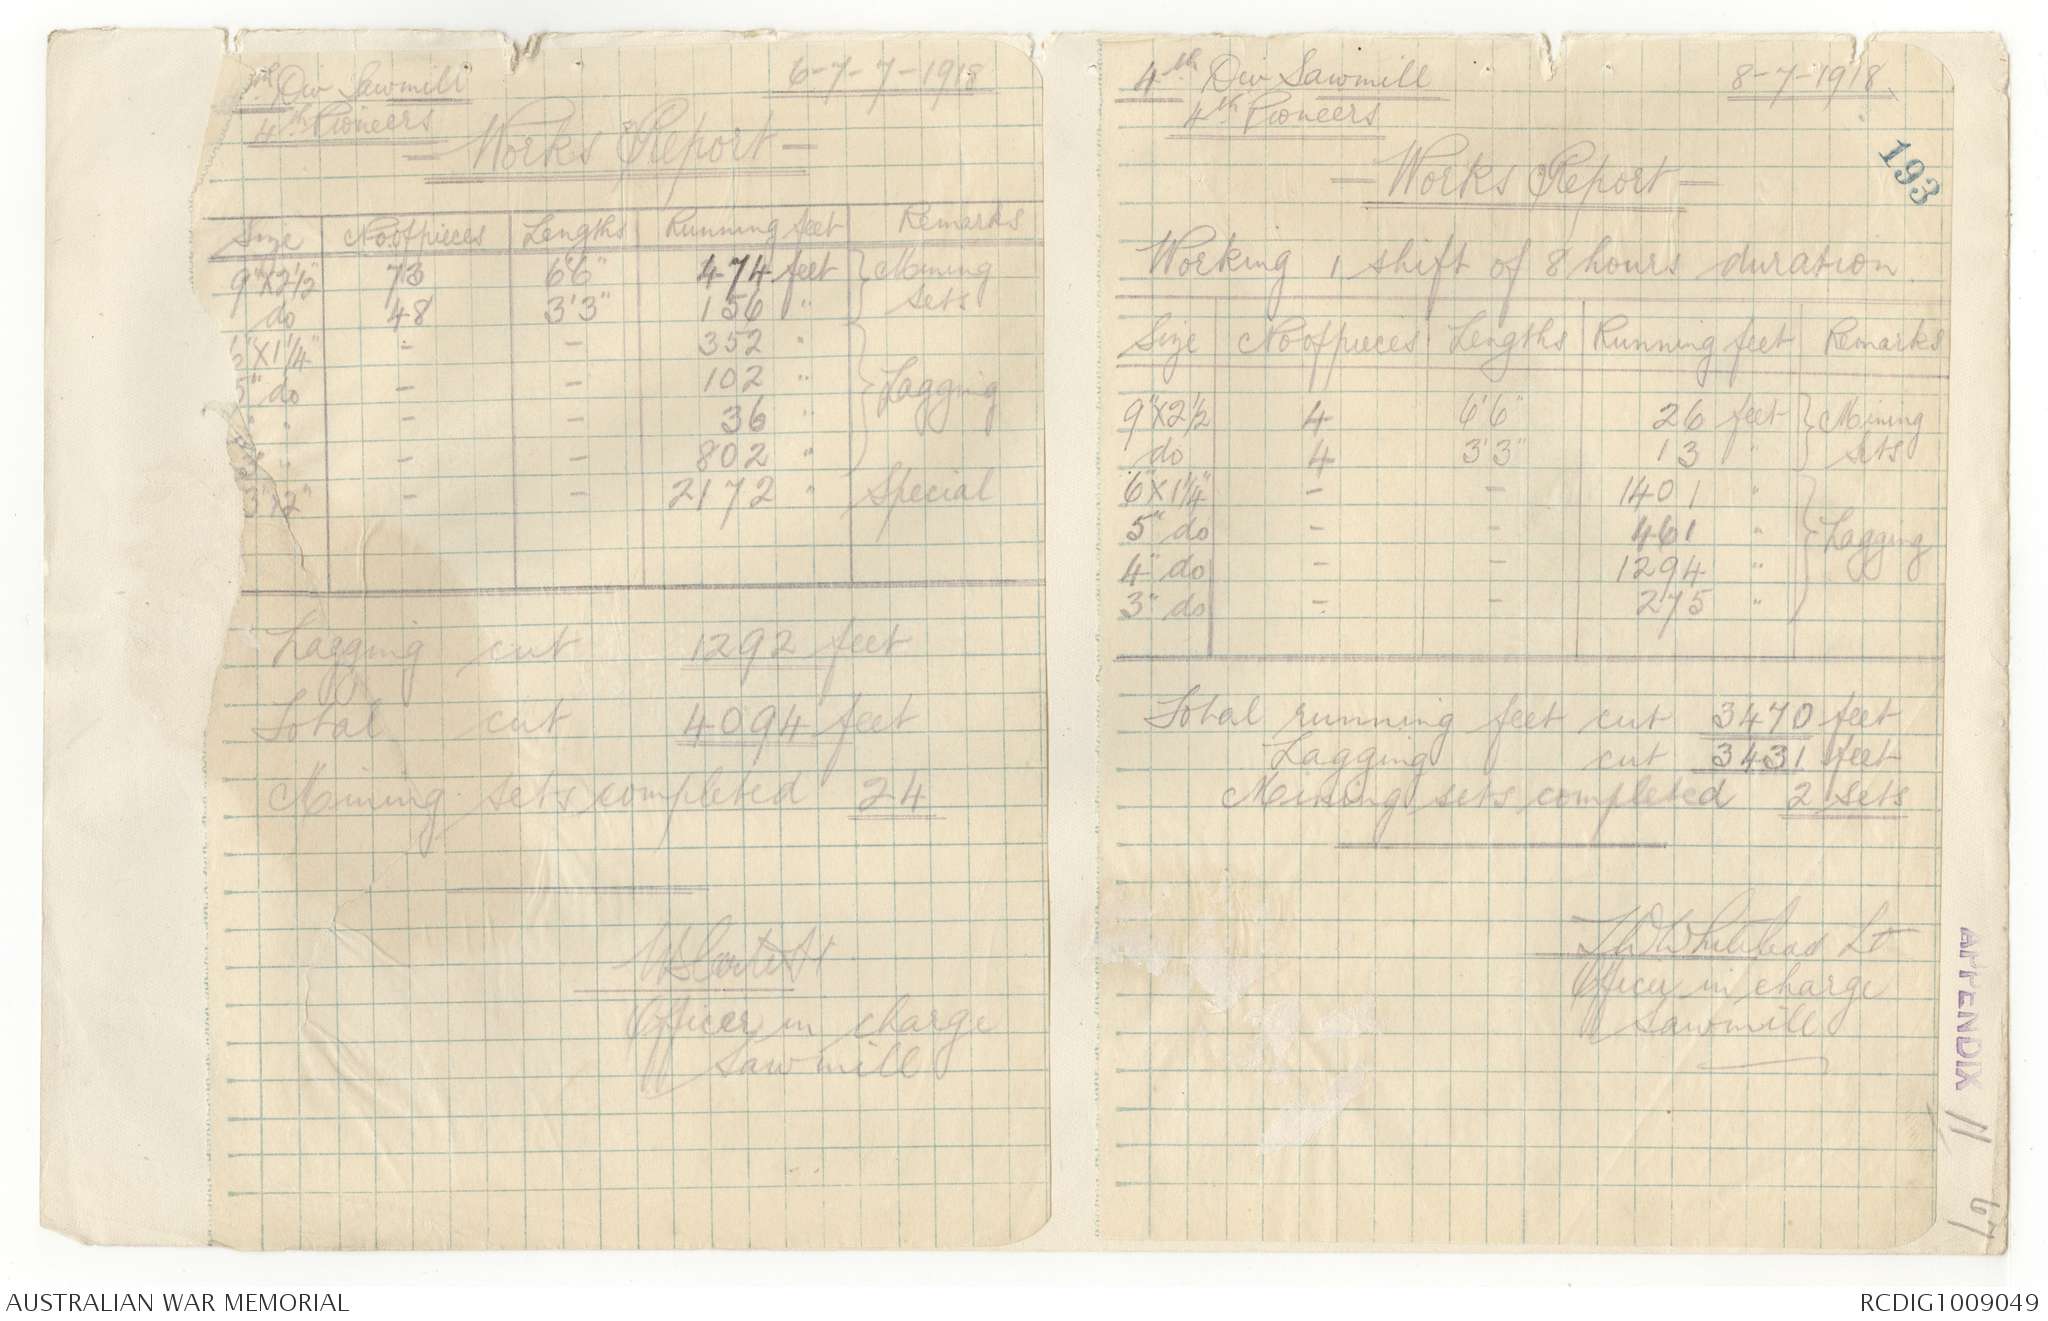 Div Sawmill 6-7-7-1918
4th Pioneers
— Works Report —
Size No of pieces Lengths Running feet Remarks
9"x2½" 73 6'6" 474 feet } Mining
do 48 3'3" 156 " } Sets
½"x1¼" - - 352 "
5" do - - 102 " } Lagging
" " - - 36 "
" " - - 802 "
3"x2" - - 2172 " Special
Lagging cut 1292 feet
Total cut 4094 feet
Mining sets completed 24
Officer in charge
Sawmill
4th Div Sawmill 8-7-1918
4th Pioneers
193
— Works Report —
Working 1 shift of 8 hours duration
Size No of pieces Lengths Running feet Remarks
9"x2½ 4 6'6" 26 feet } Mining
do 4 3'3" 13 " } Sets
6"x1¼" - - 1401 "
5" do - - 461 " } Lagging
4" do - - 1294 "
3" do - - 275 "
Total running feet cut 3470 feet
Lagging cut 3431 feet
Mining sets completed 2 sets
Whitehead Lt
Officer in charge
Sawmill
APPENDIX 11
67
AUSTRALIAN WAR MEMORIAL RCDIG1009049